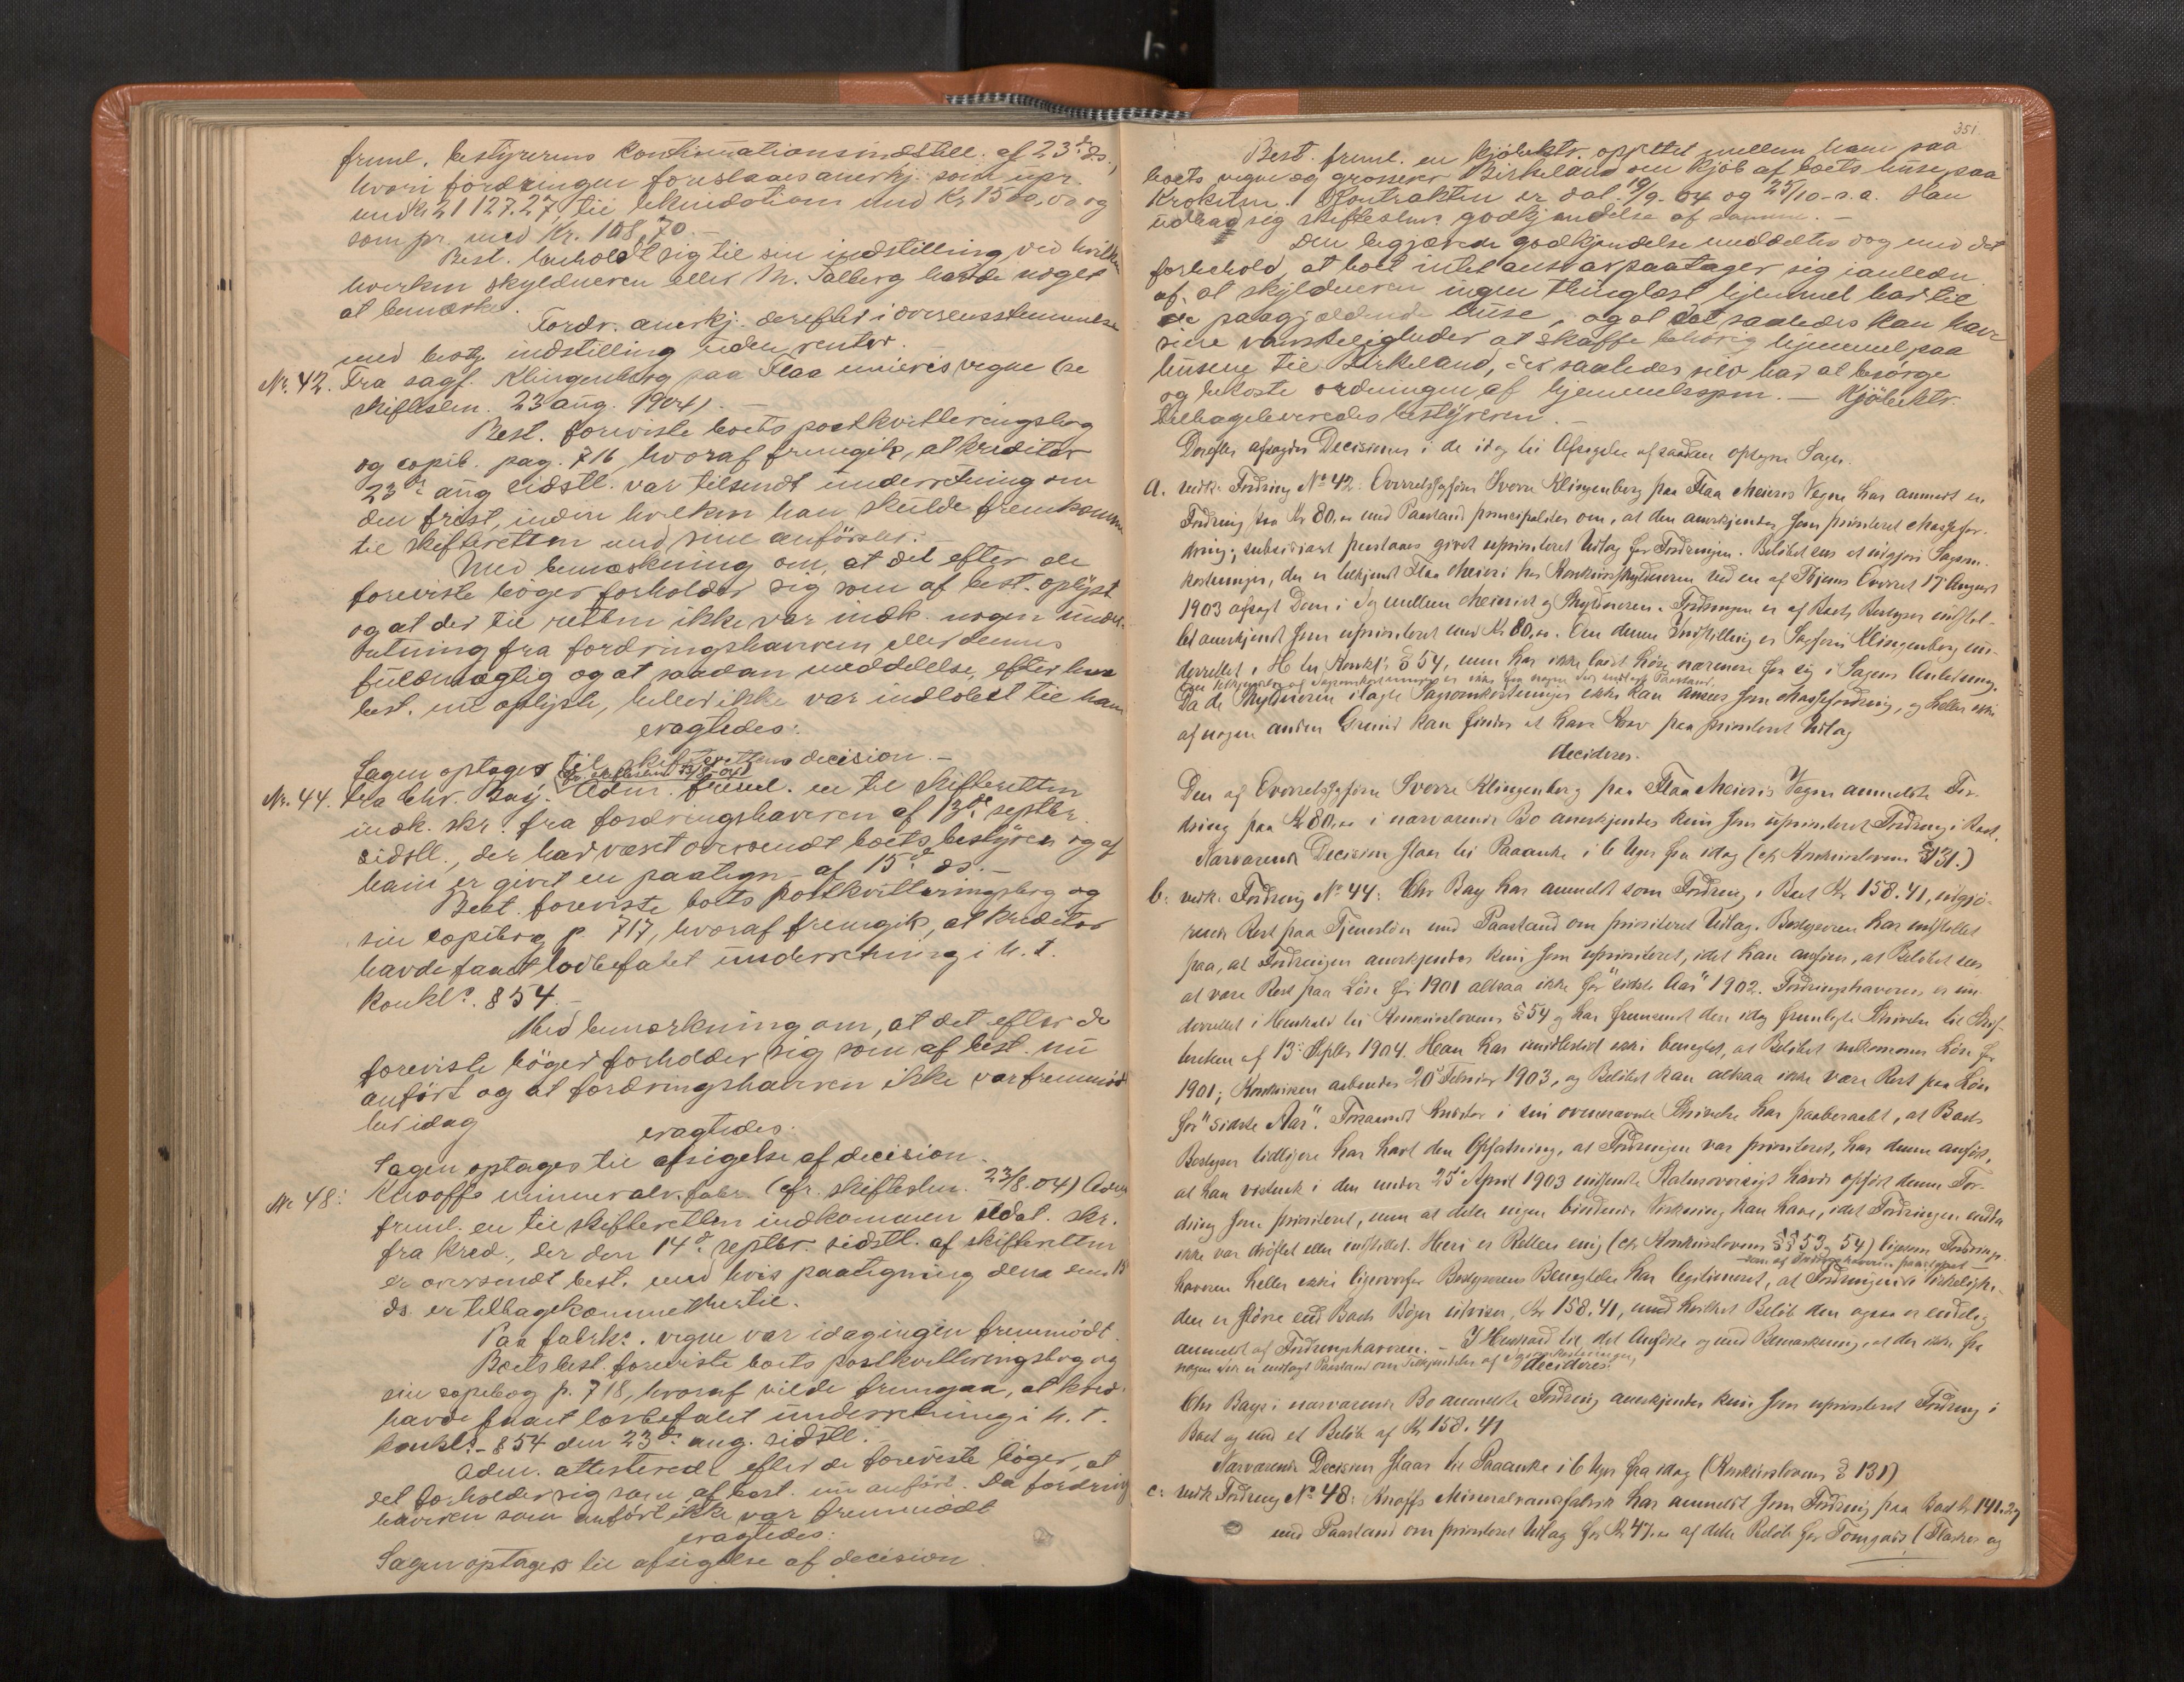 freml. bestyrerens konfirmationsindstill. af 23de ds.,
hvori fordringen foreslaaes anerkj. som upr.
med 21127.27, til likvidation med Kr. 1500,00 og
som pr. med Kr. 108,70.-
Best. henholdt sig til sin indstilling, ved hvilken
hverken skyldneren eller M. Solberg havde noget
at bemærke.
Fordr. anerkj. derefter i overensstemmelse
med best. indstilling uden renter.
No. 42. Fra sagf. Klingenberg paa Flaa meieris vegne (se
skiftesln. 23 aug. 1904).-
Best. foreviste boets postkvitteringsbog
og copib. pag. 716, hvoraf fremgik, at kreditor
23de aug sidstl. var tilsendt underretning om
den frist, inden hvilken han skulde fremkomme
til skifteretten med sine anførsler.-
Med bemærkning om, at det efter de
foreviste bøger forholder sig som af best. oplyst
og at der til retten ikke var indk. nogen under-
retning fra fordringshaveren eller dennes
fuldmægtig og at saadan meddelelse, efter hva
best. nu oplyste, heller ikke var indløbet til ham
eragtedes:
Sagen optages til skifterettens decision.-
(se skiftesln. 23/8-04)
No. 44. Fra Chr. Bay. Adm. freml. en til skifteretten
indk. skr. fra fordringshaveren af 13de septbr.
sidstl., der har været oversendt boets bestyrer og af
ham er givet en paategn. af 15de ds.-
Best. foreviste boets postkvitteringsbog og
sin copibog p. 717, hvoraf fremgik, at kreditor
havde faaet lovbefalet underretning i h. t.
konkl. § 54.-
Med bemærkning om, at det efter de
foreviste bøger forholder sig som af best. nu
anført og at fordringshaveren ikke var fremmødt
her idag
eragtedes:
Sagen optages til afsigelse af decision.
No 48: Knoffs mineralv.fabr. (cfr. skiftesln. 23/8-04) Adm.
freml. en til skifteretten indkommen udat. skr.
fra kred., der den 14de septbr. sidstl. af skifteretten
er oversendt best. med hvis paategning den 15
ds er tilbagekommet hertil.
Paa fabrks. vegne var idag ingen fremmødt.
Boets best. foreviste boets postkvitteringsbog og
sin copibog p. 718, hvoraf vilde fremgaa, at kred.
havde faaet lovbefalet underretning i h. t.
konkl. § 54 den 23de aug. sidstl.
Adm. attesterede efter de foreviste bøger, at
det forholder sig som af best. nu anført. Da fordrings
haveren som anført ikke var fremmødt
eragtedes:
Sagen optages til afsigelse af decision.
351.
Best. freml. en kjøbektr. oprettet mellem ham paa
boets vegne og grosserer Birkeland om kjøb af boets huse paa
Krokutm. Kontrakten er dat. 19/9-04 og 25/10-s.a. Han
udbad sig skiftesln godkjendelse af samme.-
Den begjærede godkjendelse meddeltes dog med det
forbehold, at boet intet ansvar paatager sig i anledn
af, at skyldneren ingen thinglæst hjemmel har til
de paagjældende huse, og at det saaledes kan have
sine vanskeligheder at skaffe behørig hjemmel paa
husene til Birkeland, der saaledes selv har at besørge
og bekoste ordningen af hjemmelsspm.- Kjøbektr.
tilbageleveredes bestyreren.-
Derefter afsagdes Decisioner i de idag til Afsigelse af saadan optagne Sager.
a. vedk. Fordring No 42. Overretssagfører Sverre Klingenberg paa Flaa Meieris Vegne har anmeldt en
Fordring stor Kr 80,00 med Paastand principaliter om, at den anerkjendes som prioriteret Massefor-
dring; subsidiært paastaaes givet uprioriteret Udlæg for Fordringen. Beløbet sees at udgjøre Sagsom-
kostninger, der er tilkjendt Flaa Meieri hos Konkursskyldneren ved en af Thjems Overret 17 August
1903 afsagt Dom i Sag mellem Meieriet og Skyldneren. Fordringen er af Boets Bestyrer indstil-
let anerkjendt som uprioriteret med Kr 80,00. Om denne Indstilling er Sagfører Klingenberg un-
derrettet i H. til Konkl. § 54, men har ikke ladet høre nærmere fra sig i Sagens Anledning.
Om Tilkjendelse af Sagsomkostninger er ikke fra nogen Side nedlagt Paastand.
Da de Skyldneren ilagte Sagsomkostninger ikke kan ansees som Massefordring, og heller ikke
af nogen anden Grund kan findes at have Krav paa prioriteret Udlæg
decideres:
Den af Overretssagfører Sverre Klingenberg paa Flaa Meieris Vegne anmeldte For-
dring paa Kr 80,00 i nærværende Bo anerkjendes kun som uprioriteret Fordring i Boet.
Nærværende Decision staar til Paaanke i 6 Uger fra idag (cfr Konkurslovens § 131.)
b: vedk. Fordring No 44: Chr Bay har anmeldt som Fordring i Boet Kr 158.41, udgjø-
rende Rest paa Tjenerløn med Paastand om prioriteret Udlæg. Bestyreren har indstillet
paa, at Fordringen anerkjendes kun som uprioriteret, idet han anfører, at Beløbet sees
at være Rest paa Løn for 1901 altsaa ikke for "sidste Aar" 1902. Fordringshaveren er un-
derrettet i Henhold til Konkurslovens § 54 og har fremsendt den idag fremlagte Skrivelse til Skif-
teretten af 13de Septbr 1904. Han har imidlertid ikke benegtet, at Beløbet vedkommer Løn for
1901; Konkursen aabnedes 20de Februar 1903, og Beløbet kan altsaa ikke være Rest paa Løn
for "sidste Aar". Forsaavidt Kreditor i sin ovennævnte Skrivelse har paaberaabt, at Boets
Bestyrer tidligere har havt den Opfatning, at Fordringen var prioriteret, har denne anført,
at han vistnok i den under 25de April 1903 indsendte Statusoversigt havde opført denne For-
dring som prioriteret, men at dette ingen bindende Virkning kan have, idet Fordringen endda
ikke var drøftet eller indstillet. Heri er Retten enig (cfr Konkurslovens §§ 53 og 54) ligesom Fordrings-
som af Fordringshaveren paastaaet
haveren heller ikke ligeoverfor Bestyrerens Benegtelse har legitimeret, at Fordringen i Virkelighe-
den er større end Boets Bøger udviser, Kr 158.41, med hvilket Beløb den ogsaa er endelig
anmeldt af Fordringshaveren.- I Henhold til det Anførte og med Bemærkning, at der ikke fra
nogen Side er nedlagt Paastand om Tilkjendelse af Sagsomkostninger,
decideres:
Chr Bays i nærværende Bo anmeldte Fordring anerkjendes kun som uprioriteret Fordring i
Boet og med et Beløb af Kr 158.41
Nærværende Decision staar til Paaanke i 6 Uger fra idag (Konkurslovens § 131)
c: vedk. Fordring No 48: Knoffs Mineralvandfabrik har anmeldt som Fordring paa Boet kr 141.29
med Paastand om prioriteret Udlæg for Kr 47.00 af dette Beløb for Tomgods (Flasker og